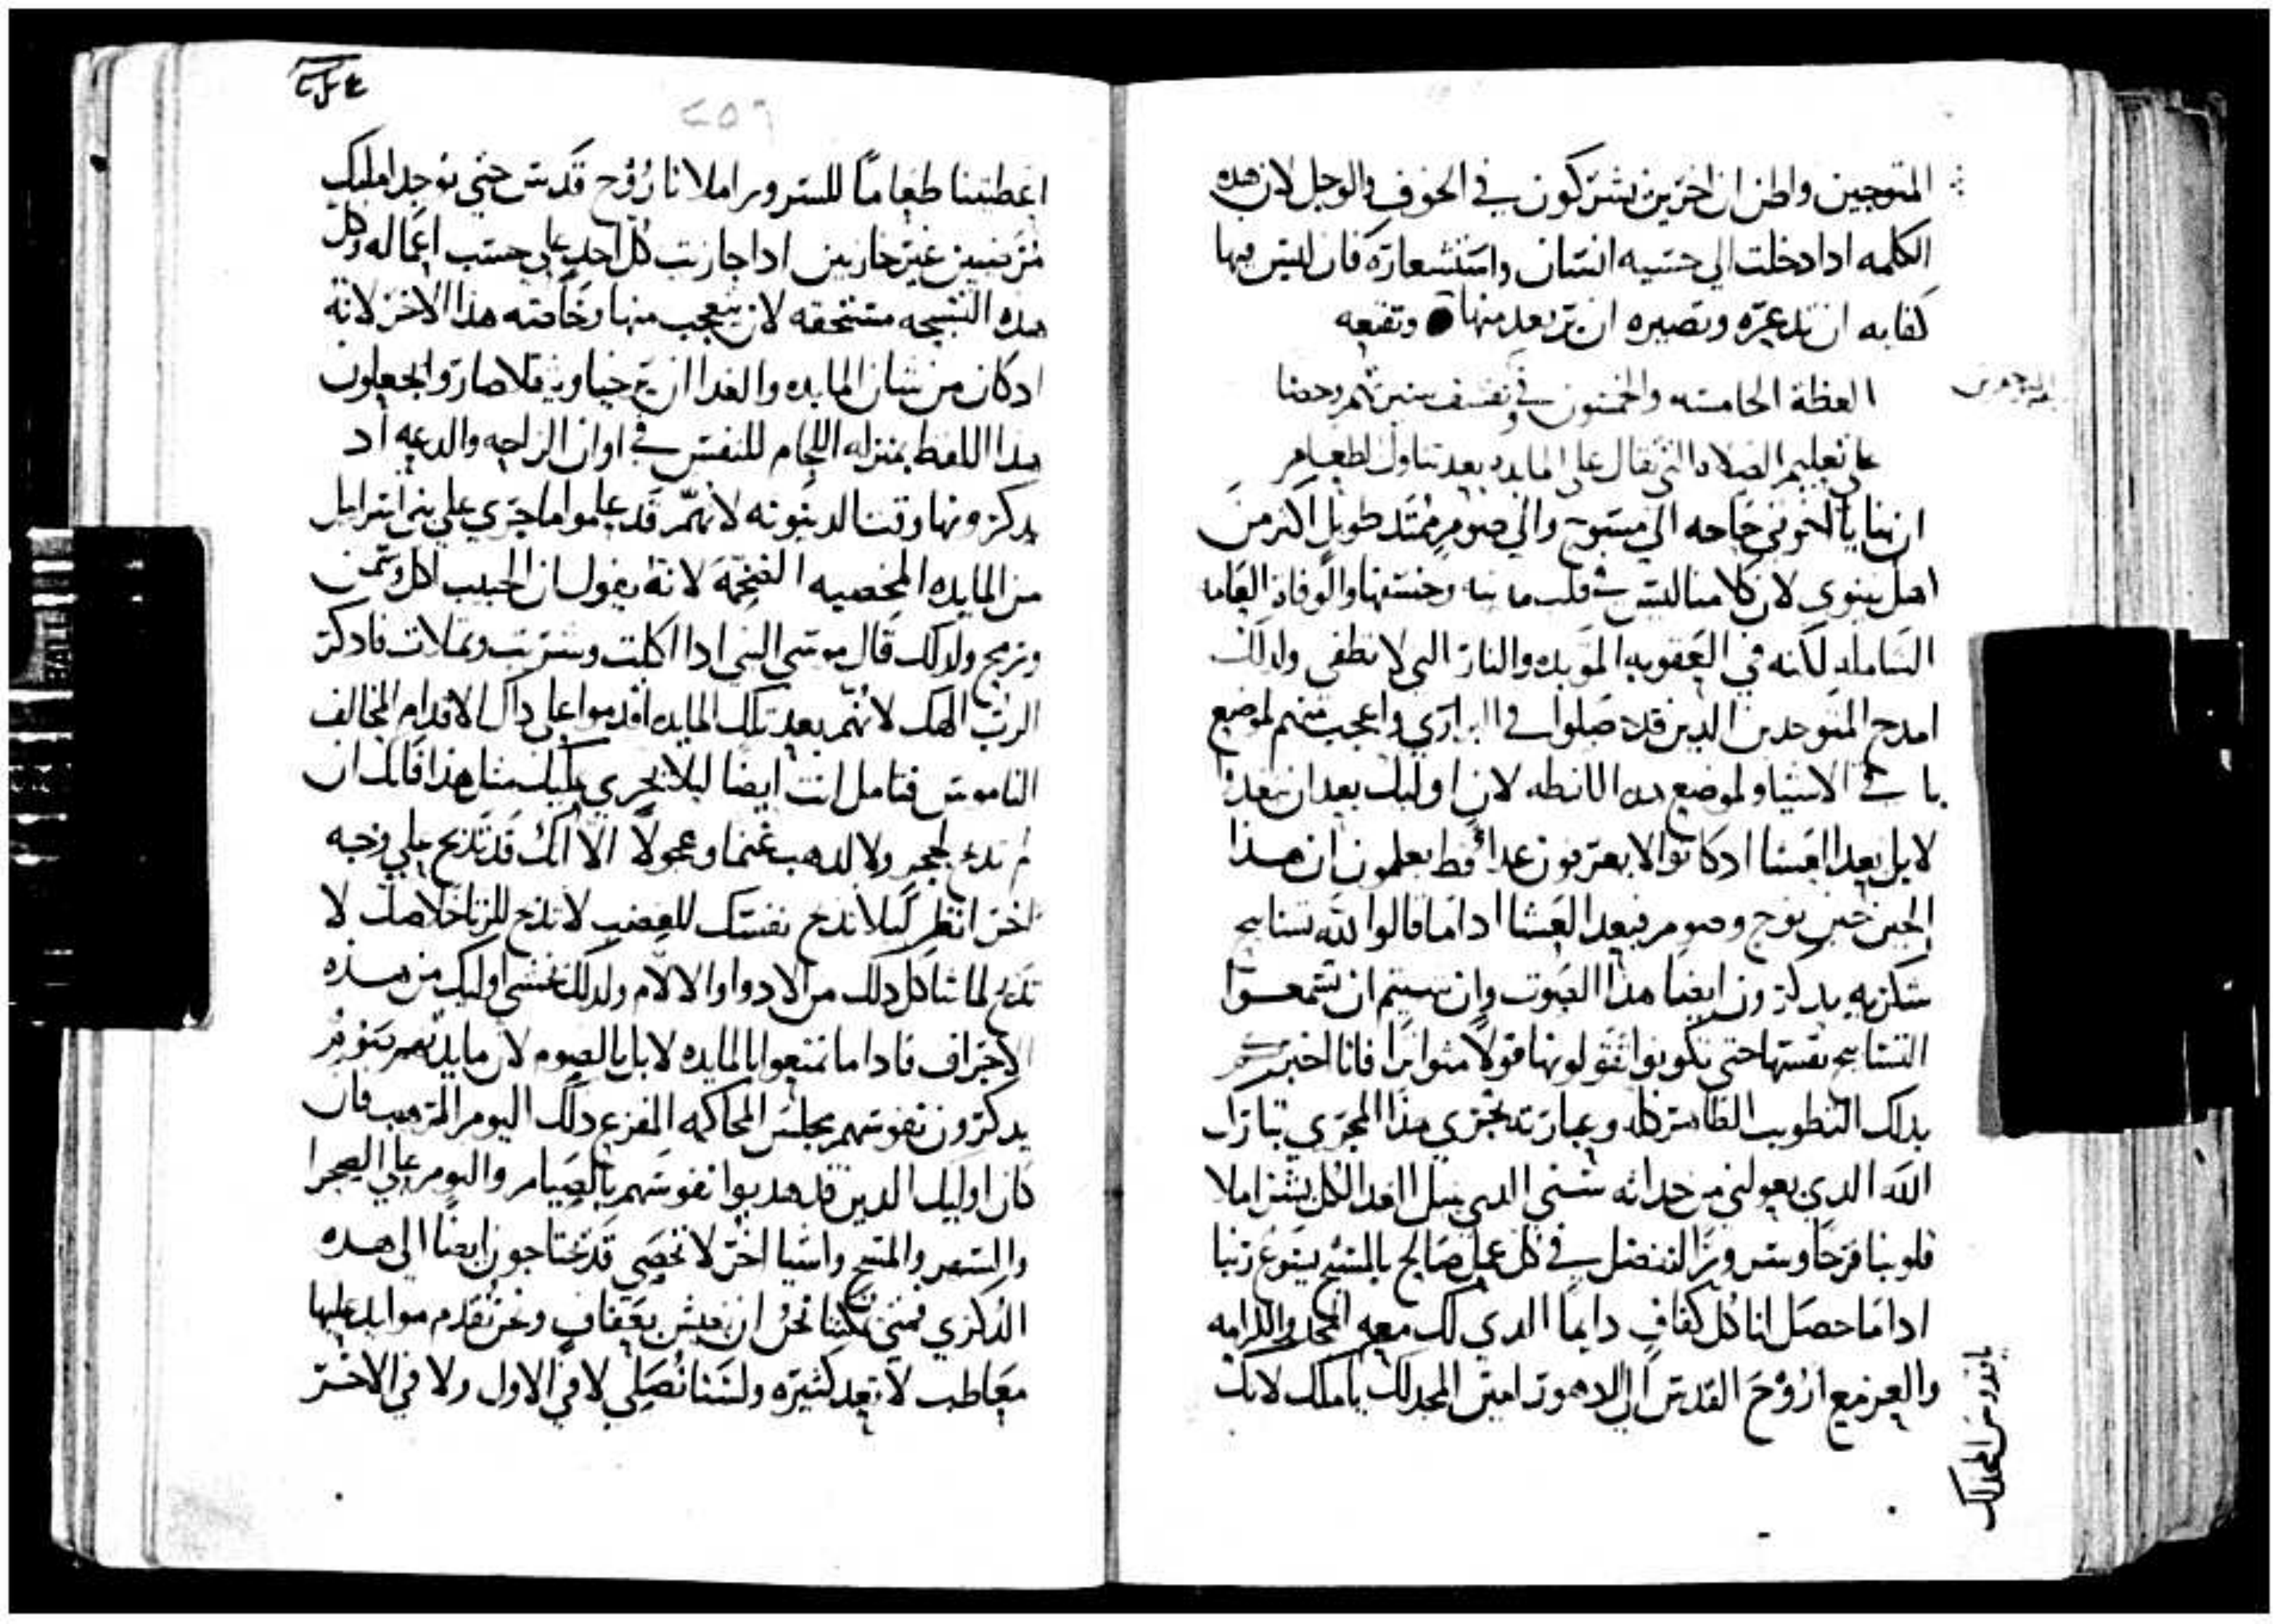 المتوجين واظن ان اخرين يشتركون في الخوف والوجل لان هده
الكلمه ادا دخلت الي حسيه انسان واستشعاره فان ليس فيها
كفايه ان تدعره وتصيره ان يرتعد منها وتنفعه
العظة الحامسه والخمسون في
علي تعليم الصلاه التي تقال علي المايده بعد تناول الطعام
ان بنا يا اخوتي حاجه الي مسوح والي صوم ممتد طويل اكتر من
اهل نينوي لان كلامنا ليس في قلب ماينه وخسفها والوفاه العامه
الشامله لكنه في العقوبه الموبده والنار التي لا تطفي ولدلك
امدح المتوحدين الدين قد حصلوا في البراري واعجب منهم لموضع
باقي الاشيا ولموضع هده اللفظه لان اوليك بعد ان يتغدوا
لا بل بعد العشا ادكانوا لا يعرفون غدا قط يعلمون ان هدا
الحين حين نوح وصوم فبعد العشا ادا ما قالوا لله تسابيح
شكريه يدكرون ايضا هدا الصوت وان شيتم ان تسمعوا
التسابيح نفسها حتي تكونوا تقولونها قولا متواترا فانا اخبركم
بدلك التطويب الطاهر كله وعبارته تجري هدا المجري تبارك
الله الدي يعولني من حداثه سني الدي يبيل الغدا لكل بشر املا
قلوبنا فرحا وسرورا لنفضل في كل عمل صالح بالمسيح يسوع ربنا
ادا ما حصل لنا كل كفاف دايما الدي لك معه المجد والكرامه
والعز مع الروح القدس الي الادهور امين المجد لك يا ملك لانك
يا قدوس المجد لك
٢٥٦
اعطيتنا طعاما للسرور املانا روح قدس حتي نوجد امامك
مرضيين غير خازيين ادا جازيت كل احد علي حسب اعماله وكل
هده التسبحه مستحقه لان يتعجب منها وخاصته هدا الاخر لانه
ادكان من شان المايده والغدا ان ترخيا ويثقلا صاروا يجعلون
هدا اللفظ بمنزله اللجام للنفس في اوان الراحه والدعه اد
يدكرونها وقت الدينونه لانهم قد علموا ما جري علي بني اسراييل
من المايده المخصبه الضخمة لانه يقول ان الحبيب اكل وسمن
ورمح ولدلك قال موسي النبي ادا اكلت وشربت وتملات فادكر
الرب الهك لانهم بعد تلك المايده اقدموا علي داك الاقدام المخالف
الناموس فتامل انت ايضا ليلا يجري عليك مثل هدا فانك ان
لم تدبح لحجر ولا لدهب غنما وعجولا الا انك قد تدبح علي وجه
اخر انظر كيلا تدبح نفسك للغضب لا تدبح للزنا خلاصك لا
تدبح لما شاكل دلك من الادوا والالام ولدلك خشي اوليك من هده
الاجراف فادا ما تمتعوا بالمايده لا بل بالصوم لان مايدتهم صوم
يدكرون نفوسهم مجلس المحاكمه المفزع دلك اليوم المرهب فان
كان اوليك الدين قد هدبوا نفوسهم بالصيام والنوم علي الصحرا
والسهر والمسح واشيا اخر لا تحصي قد يحتاجون ايضا الي هده
الدكري فمتي يمكننا نحن ان نعيش بعفاف ونحن نقدم موايد عليها
معاطب لا تعد كثيره ولسنا نصلي لا في الاول ولا في الاخر